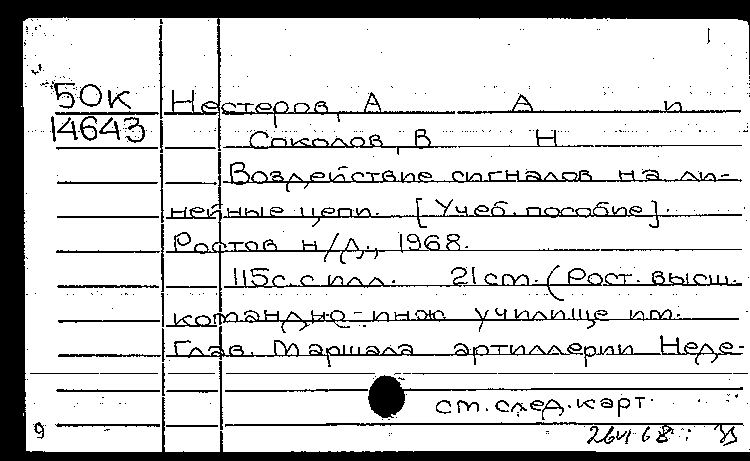 50к Нестеров, А А и
14643 Соколов, В Н
Воздействие сигналов на ли-
нейные цепи. [Учеб. пособие].
Ростов н/Д., 1968.
115с. с илл. 21 см. (Рост. высш.
командно-инж училище им.
Глав. Маршала артиллерии Неде-
см. след. карт.
9